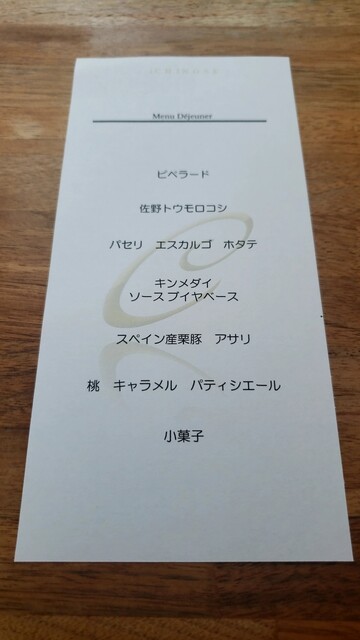 Menu Déjeuner
ピペラード
佐野トウモロコシ
パセリ　エスカルゴ　ホタテ
キンメダイ
ソースブイヤベース
スペイン産栗豚　アサリ
桃　キャラメル　パティシエール
小菓子